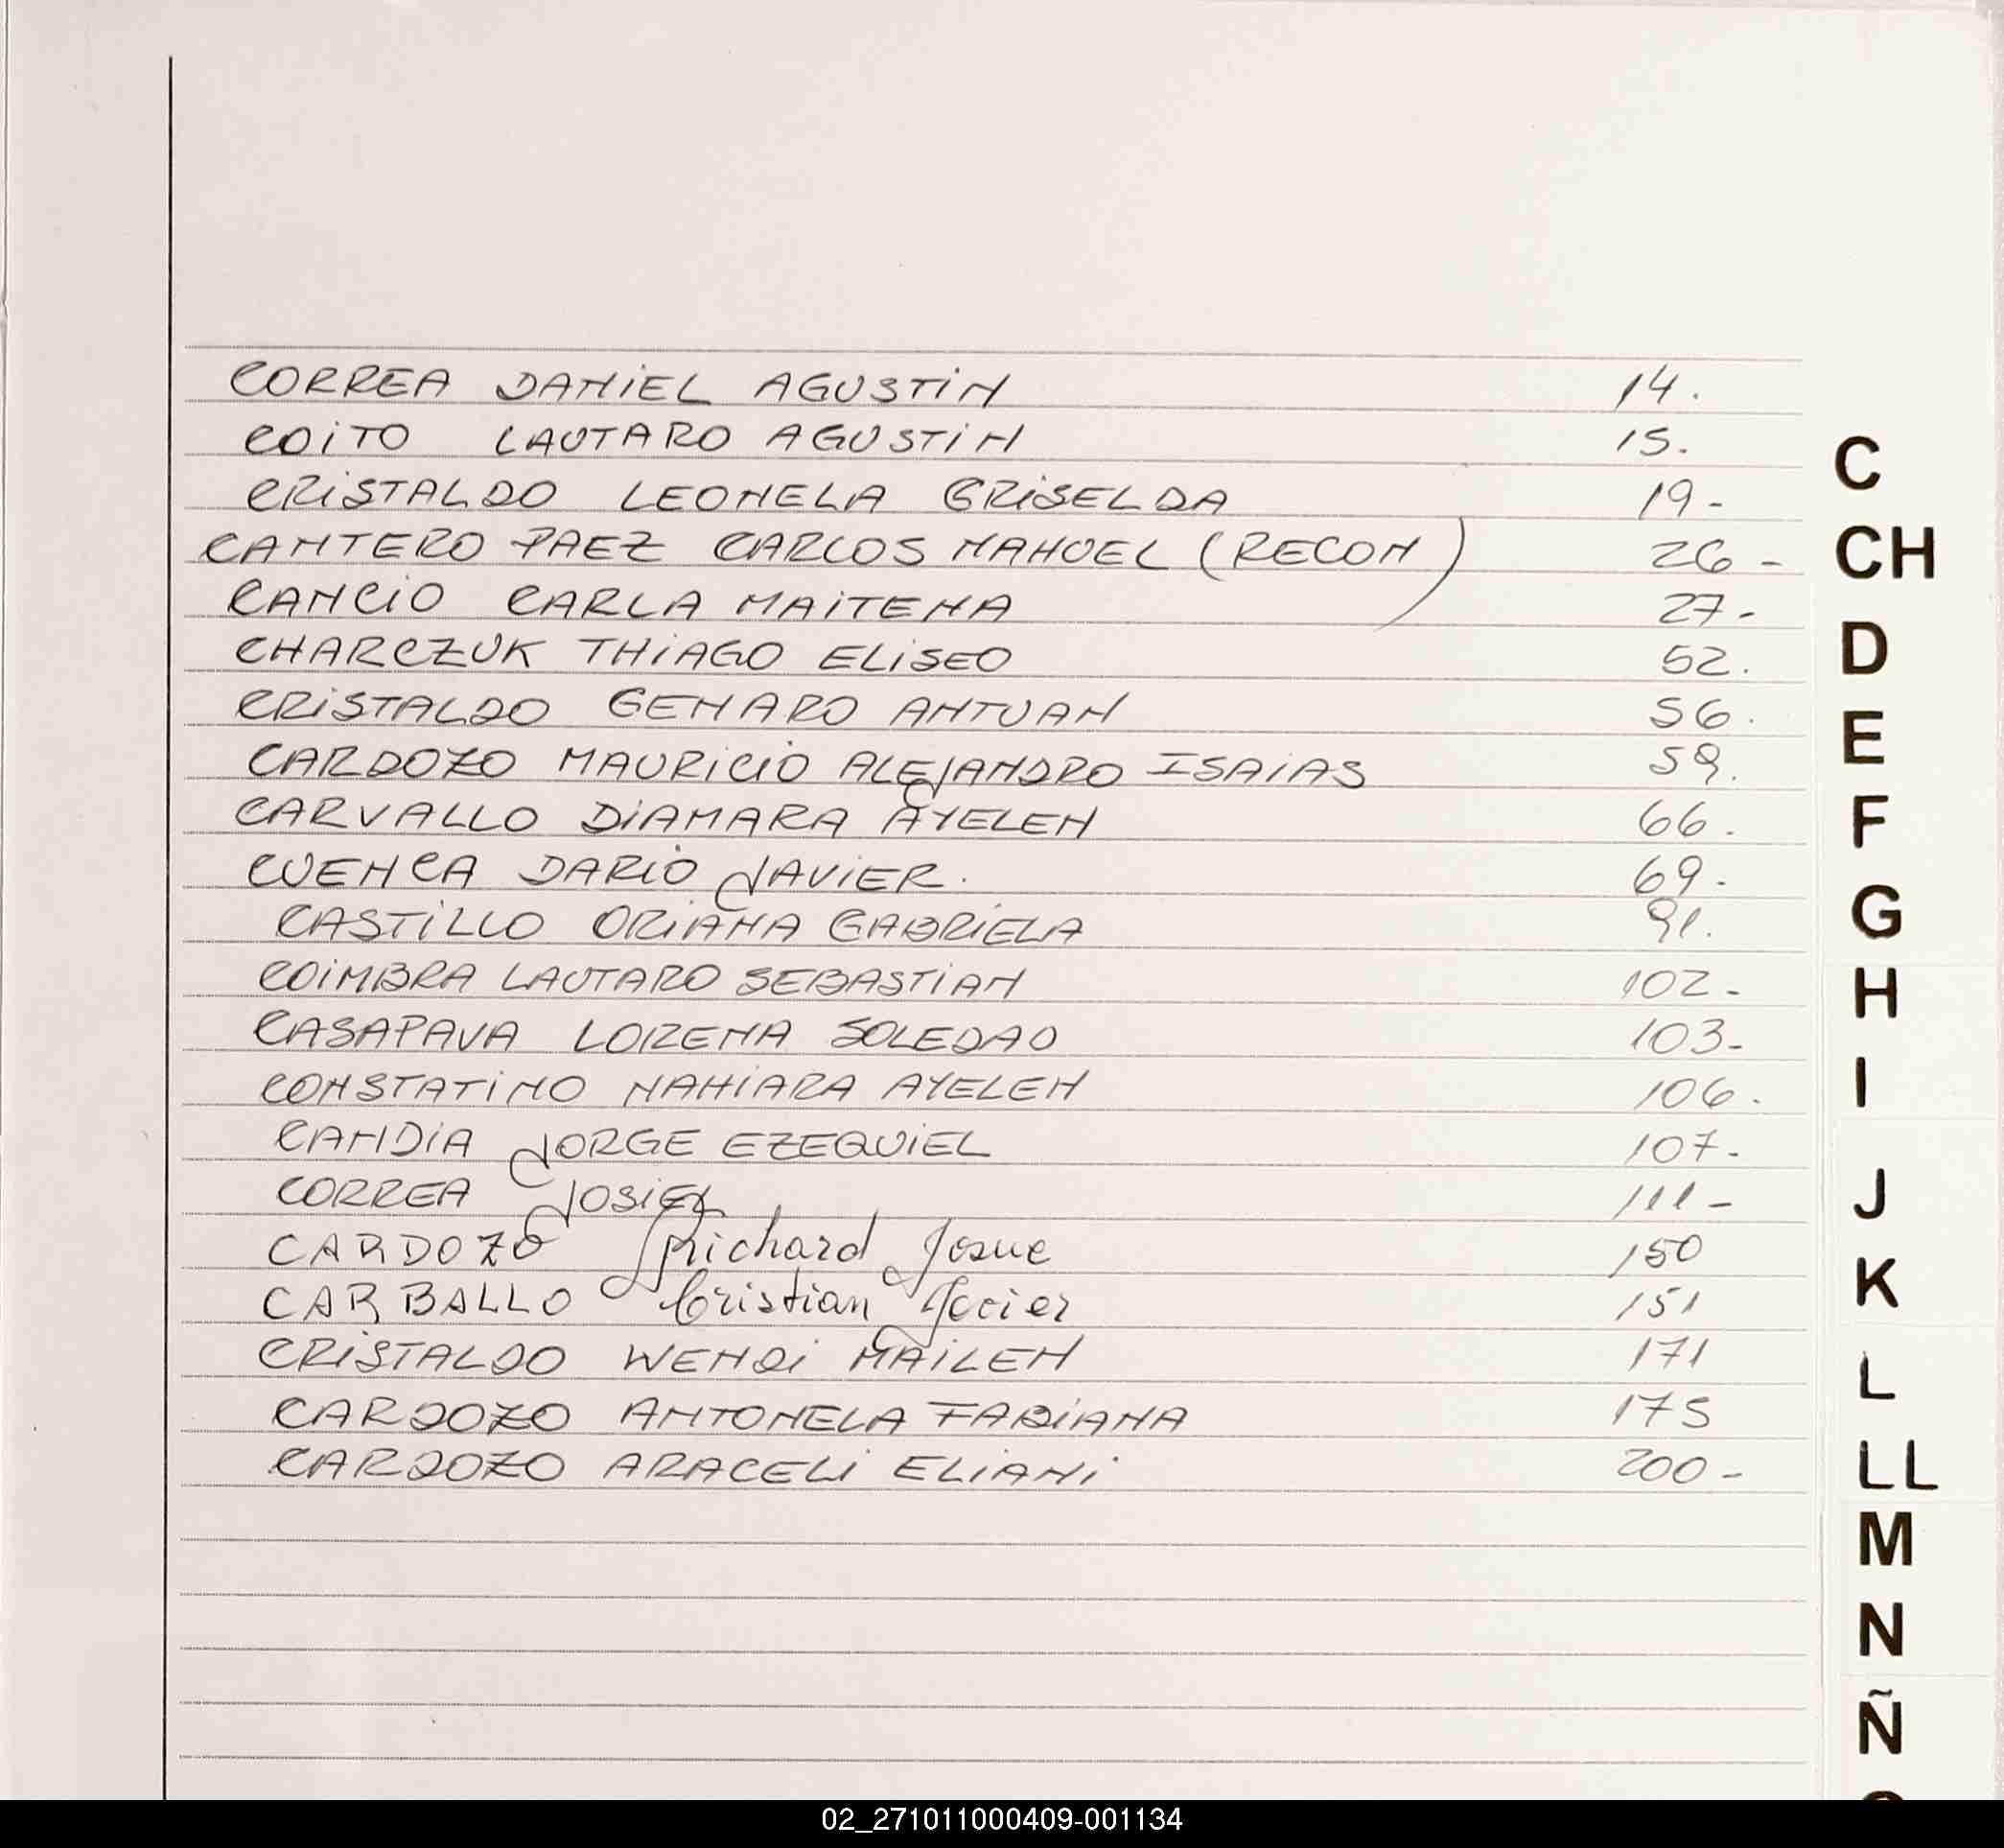 CORREA DANIEL AGUSTIN 14.
COITO LAUTARO AGUSTIN 15.
CRISTALDO LEONELA GRISELDA 19-
CANTERO PAEZ CARLOS MANUEL (RECON) 26-
CANCIO CARLA MAITENA 27-
CHARCZUK THIAGO ELISEO 52.
CRISTALDO GENARO ANTUAN 56.
CARDOZO MAURICIO ALEJANDRO ISAIAS 59.
CARVALLO DIAMARA AYELEN 66.
CUENCA DARIO JAVIER. 69-
CASTILLO ORIANA GABRIELA 91.
COIMBRA LAUTARO SEBASTIAN 102-
CASAPAVA LORENA SOLEDAD 103-
CONSTATINO NAHIARA AYELEN 106.
CANDIA JORGE EZEQUIEL 107-
CORREA JOSIEL 111-
CARDOZO Richard Josue 150
CARBALLO Cristian Javier 151
CRISTALDO WENDI MAILEN 171
CARDOZO ANTONELA FABIANA 175
CARDOZO ARACELI ELIANI 200-
C
CH
D
E
F
G
H
I
J
K
L
LL
M
N
Ñ
02_271011000409-001134